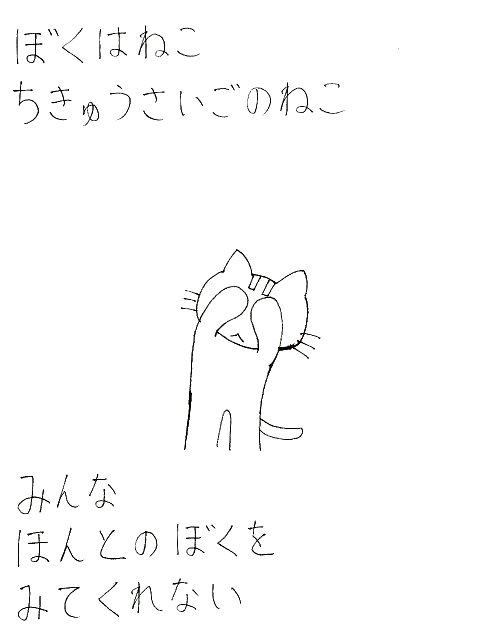 ぼくはねこ
ちきゅうさいごのねこ
みんな
ほんとのぼくを
みてくれない